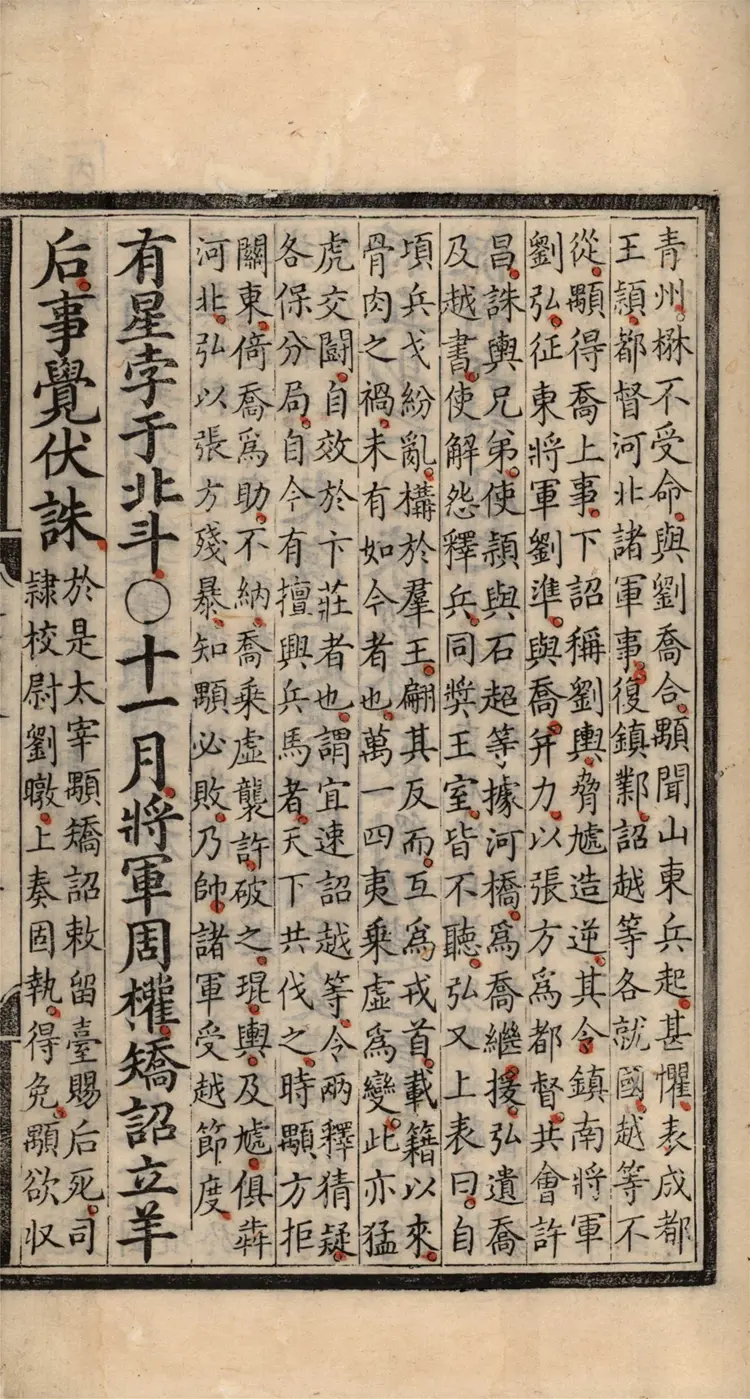 青州楙不受命與劉喬合顒聞山東兵起甚懼表成都
王頴都督河北諸軍事復鎮鄴詔越等各就國越等不
從顒得喬上事下詔稱劉輿脅虓造逆其令鎮南將軍
劉弘征東將軍劉準與喬并力以張方爲都督共會許
昌誅輿兄弟使頴與石超等據河橋爲喬繼援弘遺喬
及越書使解怨釋兵同奬王室皆不聽弘又上表曰自
頃兵戈紛亂構於羣王翩其反而互爲戎首載籍以來
骨肉之禍未有如今者也萬一四夷乘虛爲變此亦猛
虎交鬬自效於卞莊者也謂宜速詔越等令兩釋猜疑
各保分局自今有擅興兵馬者天下共伐之時顒方拒
關東倚喬爲助不納喬乘虛襲許破之琨輿及虓俱犇
河北弘以張方殘暴知顒必敗乃帥諸軍受越節度
有星孛于北斗○十一月將軍周權矯詔立羊
后事覺伏誅
於是太宰顒矯詔敕留臺賜后死司
隷校尉劉暾上奏固執得免顒欲収